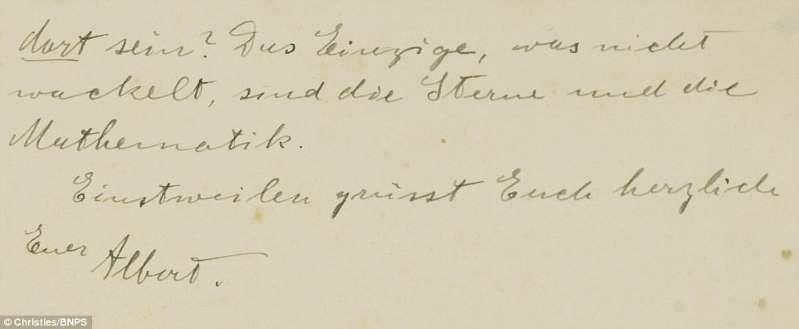 dort sein? Das Einzige, was nicht
wackelt, sind die Sterne und die
Mathematik.
Einstweilen grüsst Euch herzlich
Euer Albert.
© Christies/BNPS